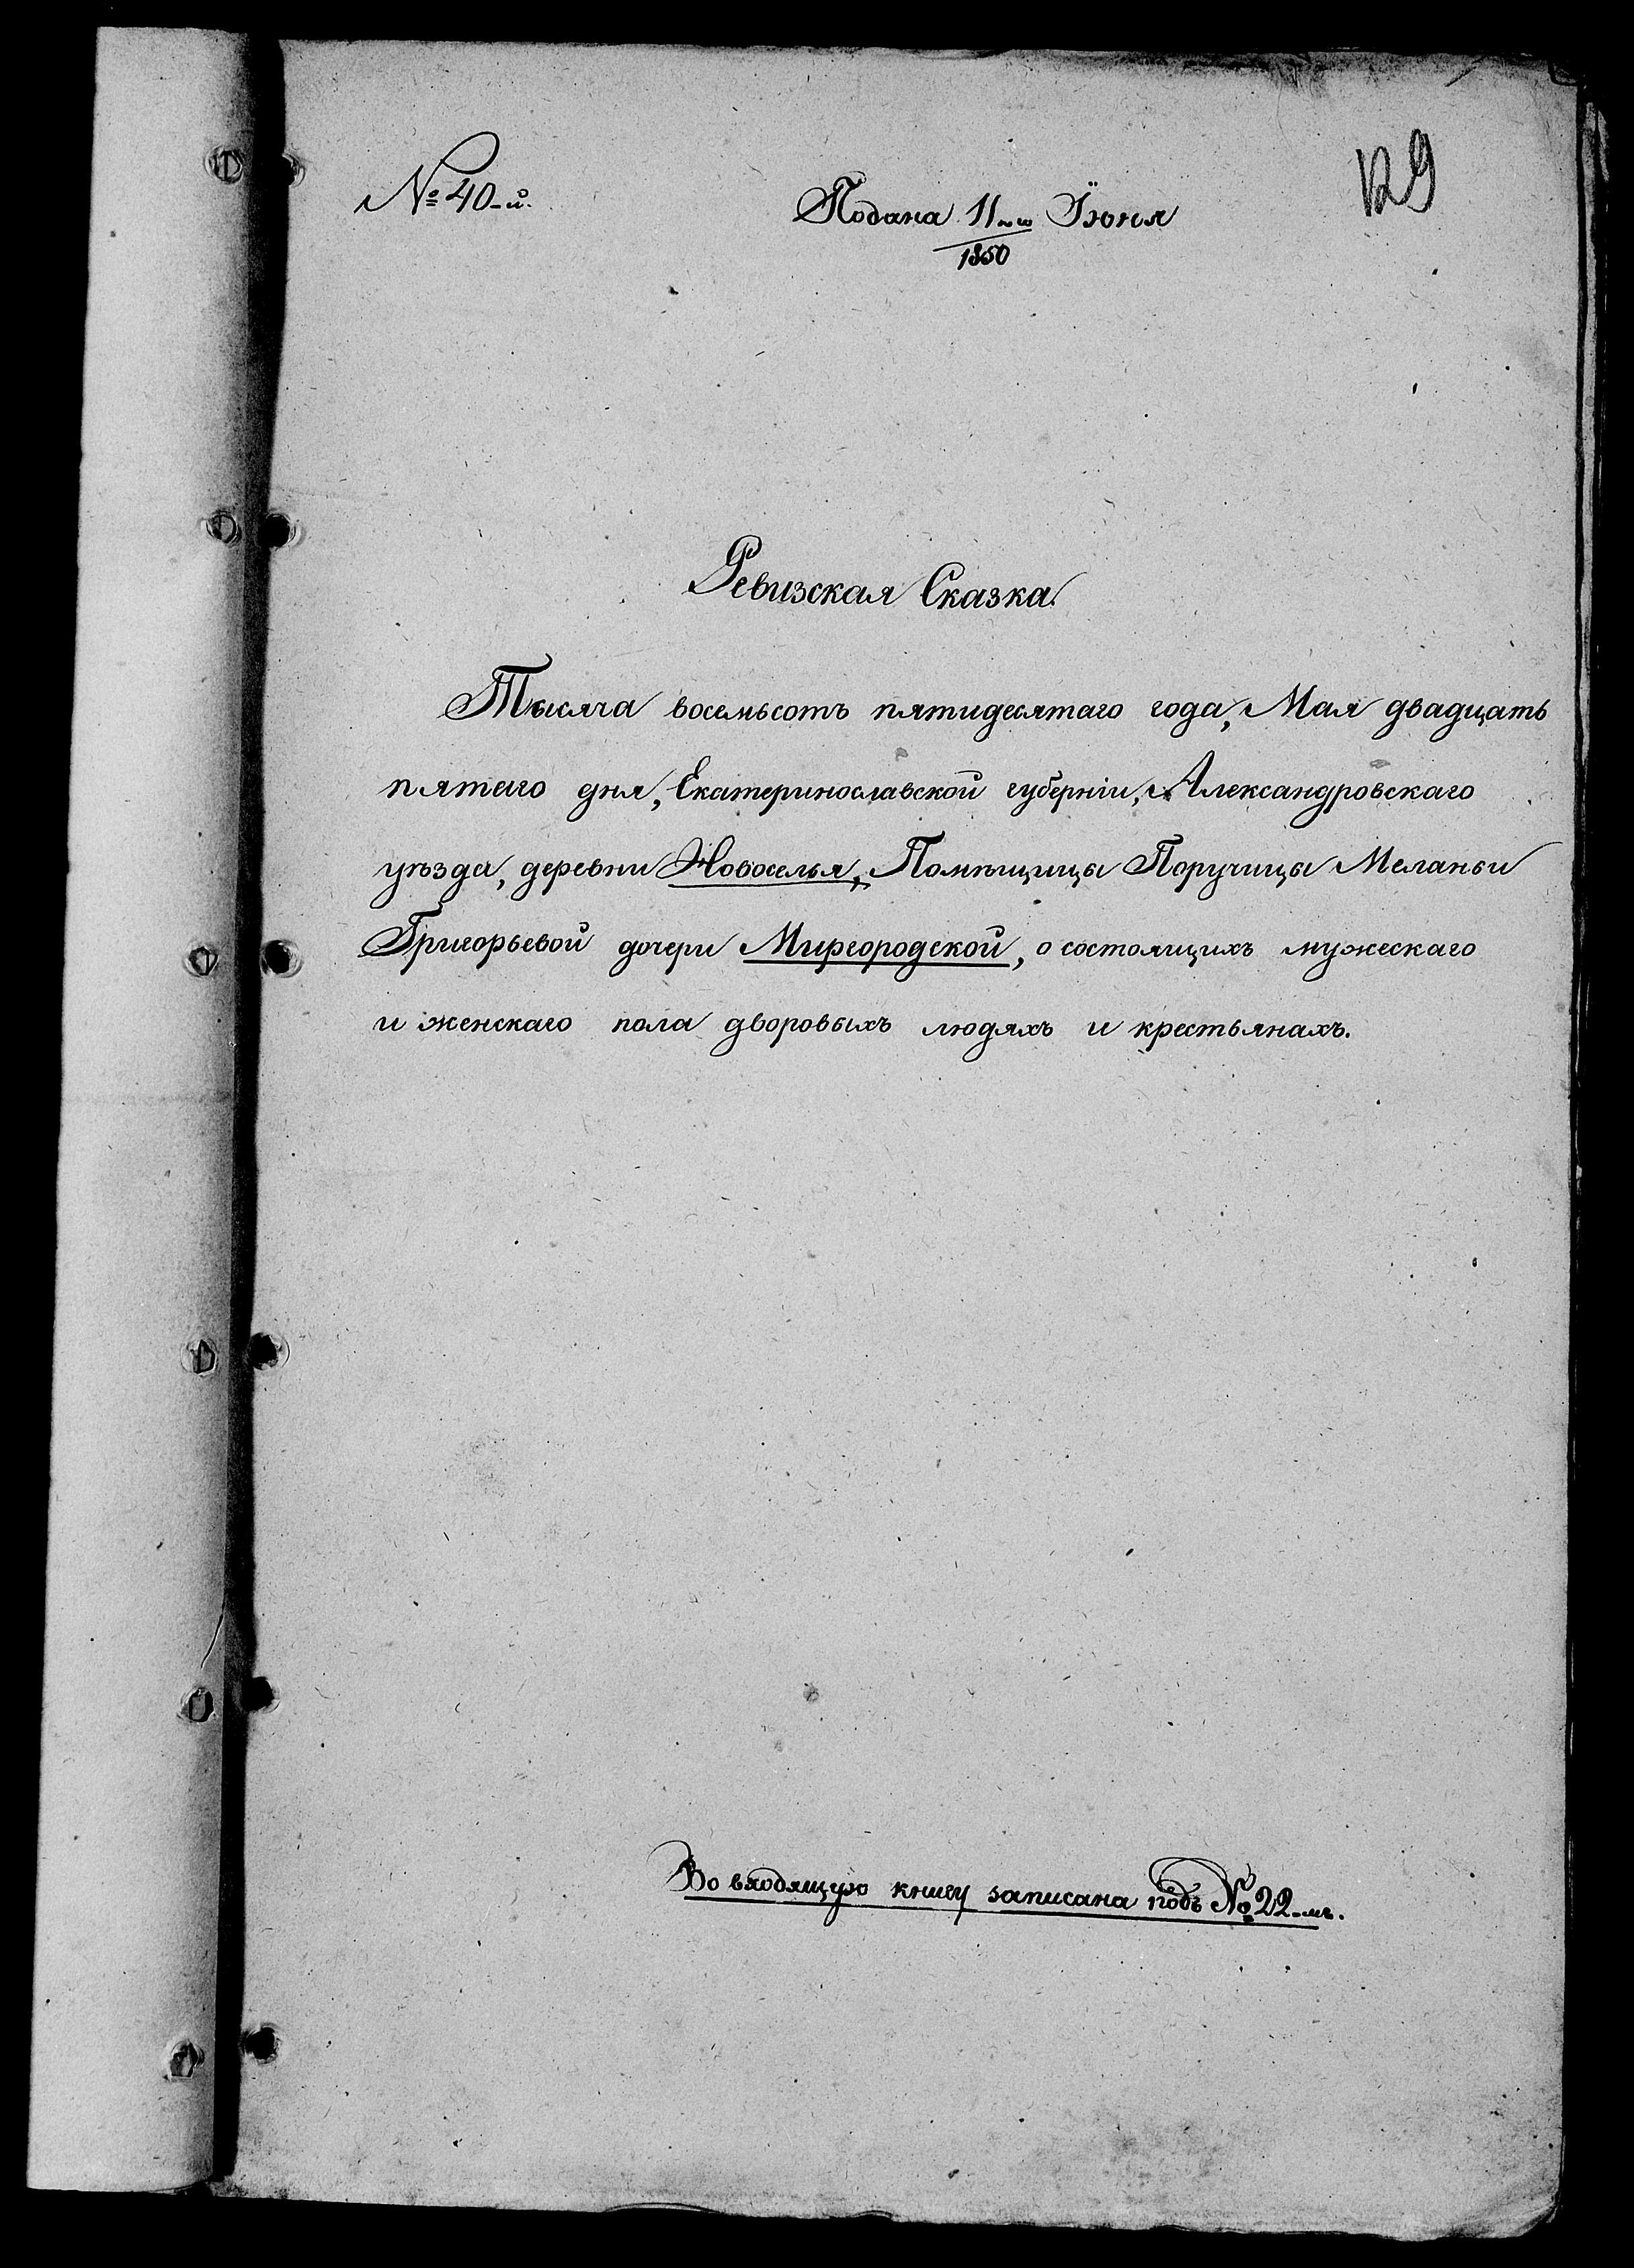 № 40-й.
Подана 11го Їюня
1850
129
Ревизская Сказка.
Тысяча восемьсотъ пятидесятаго года, Мая двадцать
пятаго дня, Екатеринославской губерніи, Александровскаго
уѣзда, деревни Новоселья, Помѣщицы Поручицы Меланьи
Григорьевой дочери Миргородской, о состоящихъ мужескаго
и женскаго пола дворовыхъ людяхъ и крестьянахъ.
Во входящую книгу записана подъ № 22-мъ.